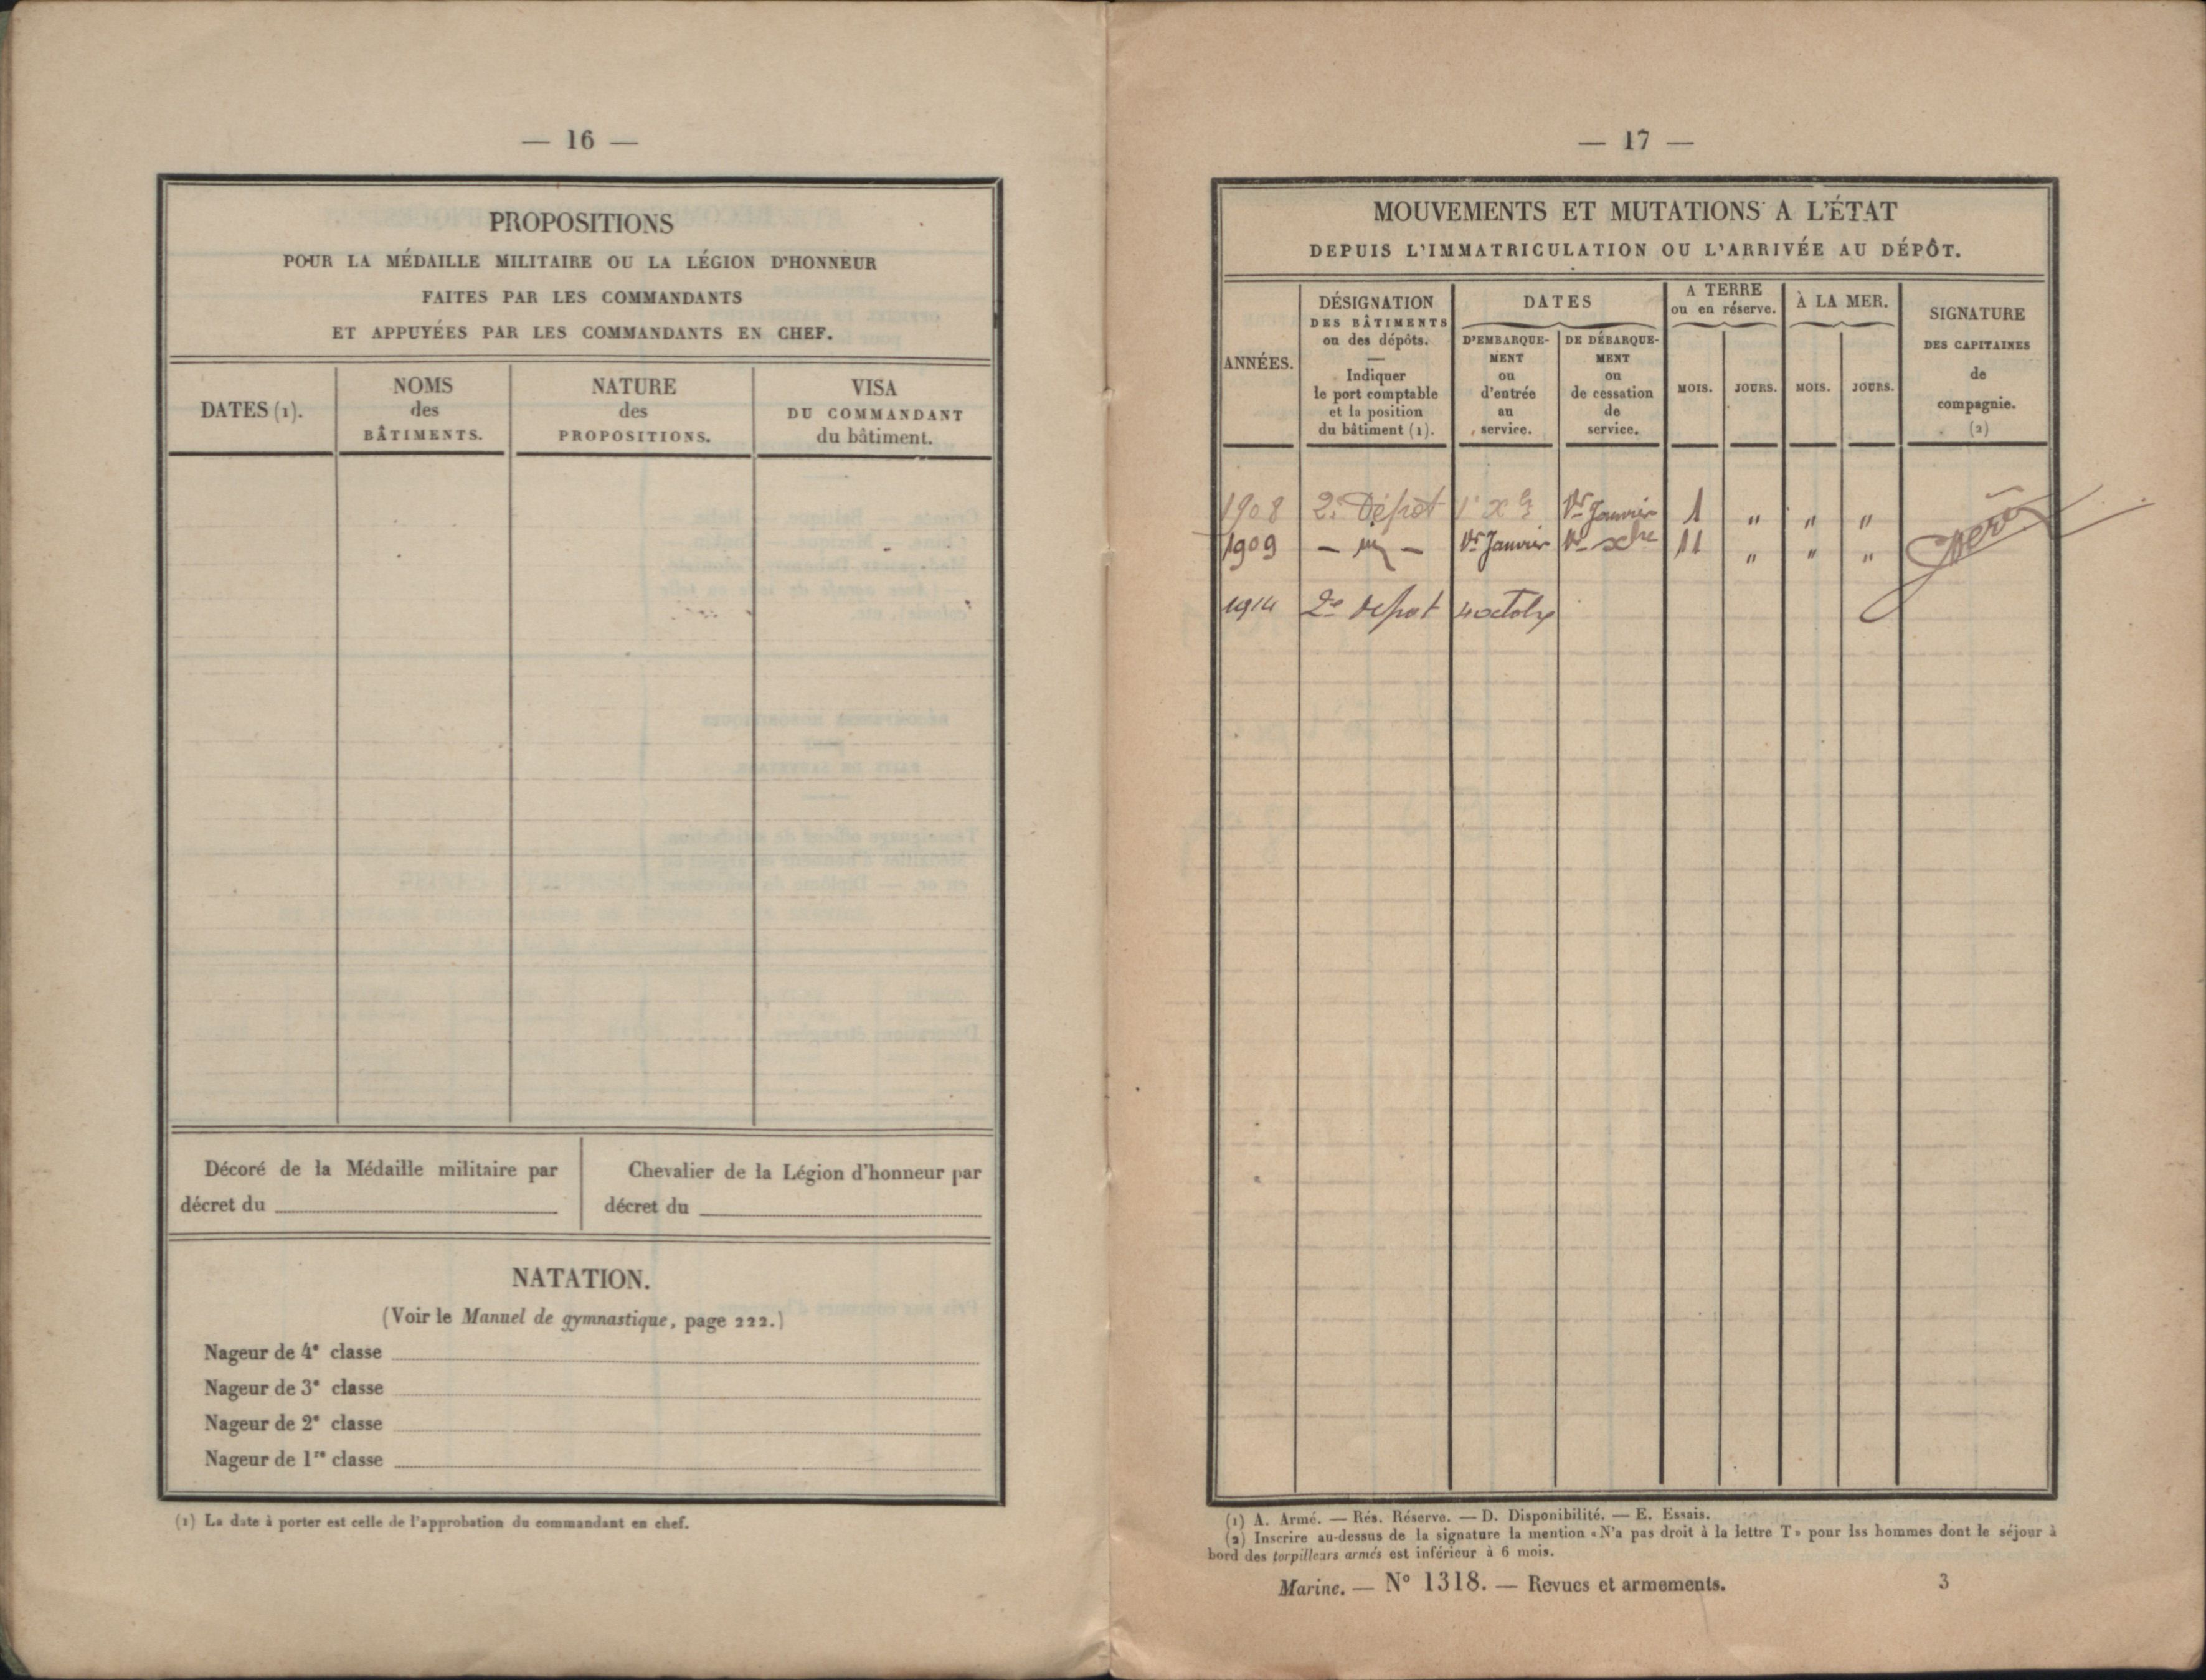 — 16 —
PROPOSITIONS
POUR LA MÉDAILLE MILITAIRE OU LA LÉGION D'HONNEUR
FAITES PAR LES COMMANDANTS
ET APPUYÉES PAR LES COMMANDANTS EN CHEF.
DATES (1).
NOMS
des
BÂTIMENTS.
NATURE
des
PROPOSITIONS.
VISA
DU COMMANDANT
du bâtiment.
Décoré de la Médaille militaire par
décret du
Chevalier de la Légion d'honneur par
décret du
NATATION.
(Voir le Manuel de gymnastique, page 222.)
Nageur de 4e classe
Nageur de 3e classe
Nageur de 2e classe
Nageur de 1re classe
(1) La date à porter est celle de l'approbation du commandant en chef.
— 17 —
MOUVEMENTS ET MUTATIONS A L'ÉTAT
DEPUIS L'IMMATRICULATION OU L'ARRIVÉE AU DÉPÔT.
ANNÉES.
DÉSIGNATION
DES BÂTIMENTS
ou des dépôts.
—
Indiquer
le port comptable
et la position
du bâtiment (1).
DATES
D'EMBARQUE-
MENT
ou
d'entrée
au
service.
DE DÉBARQUE-
MENT
ou
de cessation
de
service.
A TERRE
ou en réserve.
MOIS. JOURS.
À LA MER.
MOIS. JOURS.
SIGNATURE
DES CAPITAINES
de
compagnie.
(2)
1908 2e Dépot 1er Xbre 1er Janvier 1 " " "
1909 1er Janvier 1er Xbre 11 " " "
1914 2e depot 4 octobre
(1) A. Armé. — Rés. Réserve. — D. Disponibilité. — E. Essais.
(2) Inscrire au-dessus de la signature la mention «N'a pas droit à la lettre T» pour lss hommes dont le séjour à
bord des torpilleurs armés est inférieur à 6 mois.
Marine. — N° 1318. — Revues et armements. 3